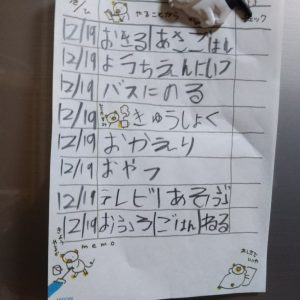 やることがら
チェック
12/19 おきる あさごはん
12/19 ようちえんにいつ
12/19 バスにのる
12/19 きゅうしょく
12/19 おかえり
12/19 おやつ
12/19 テレビ あそぶ
12/19 おふろ ごはん ねる
memo